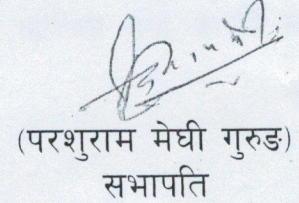 (परशुराम मेघी गुरुङ)
सभापति